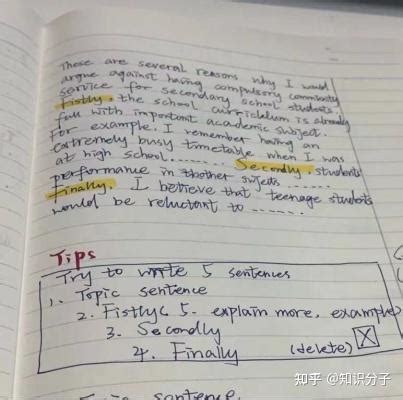 These are several reasons why I would
argue against having compulsory community
service for secondary school students.
Fistly, the school curricklum is already
full with important academic subject.
For example. I remember having an
extremely busy timetable when I was
at high school......... Secondly, students
performance in thother sujects ......
Finally, I believe that teenage students
would be reluctant to ......
Tips
Try to write 5 sentences
1. Topic sentence
2. Fistly( 5. explain more, examples
3. Secondly
4. Finally (delete)
sentence.
知乎 @知识分子